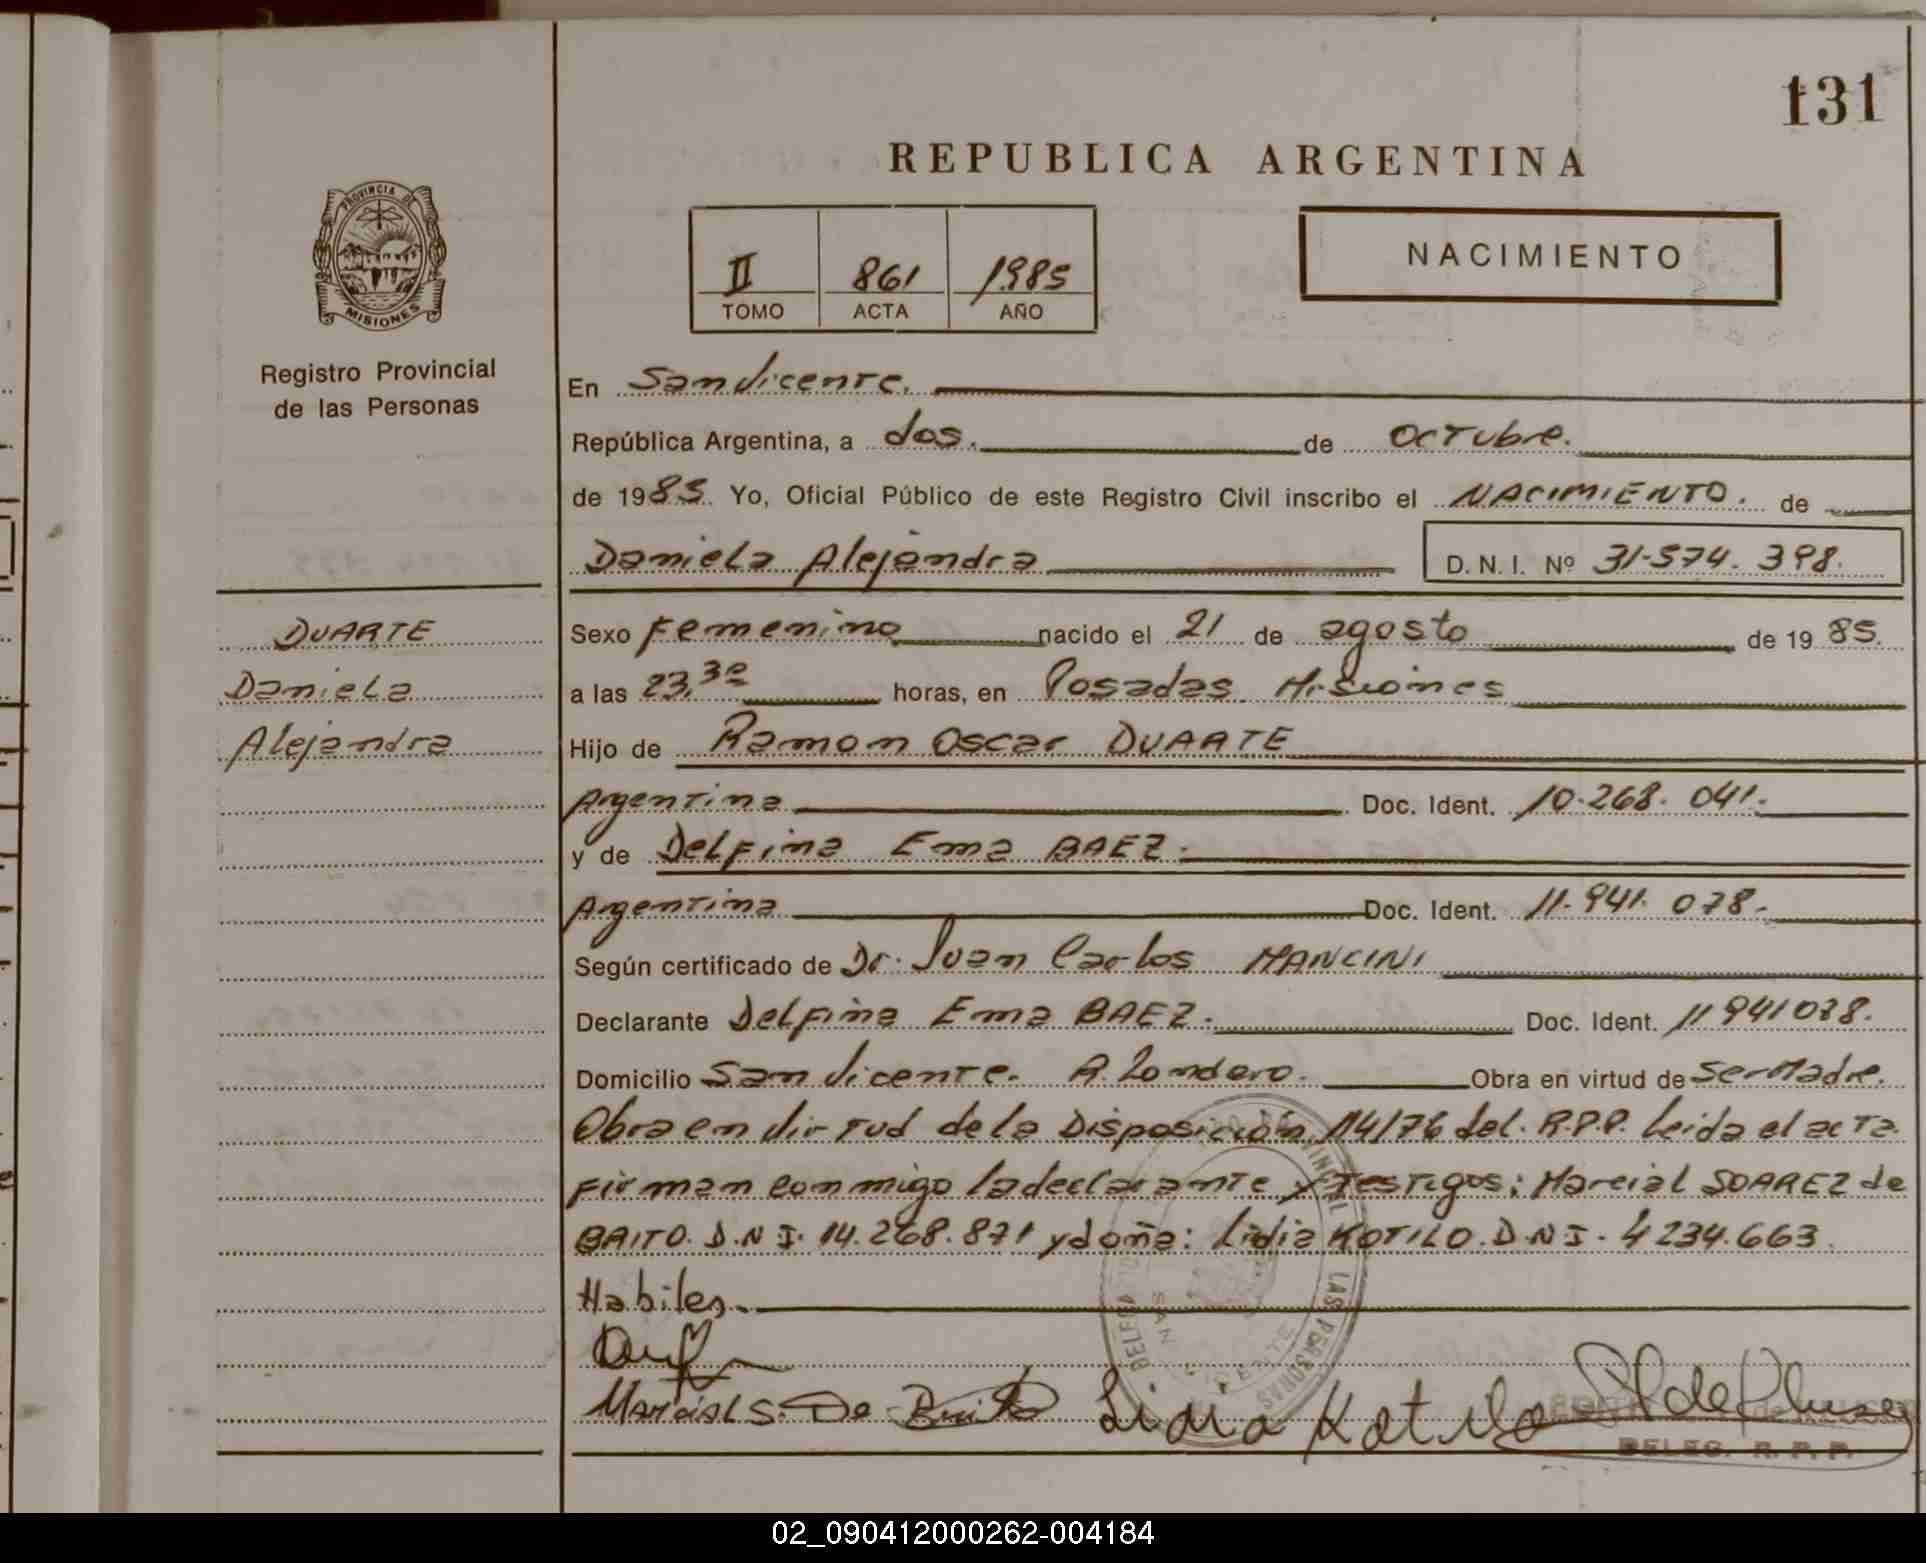 131
REPUBLICA ARGENTINA
PROVINCIA DE
MISIONES
Registro Provincial
de las Personas
II 861 1985
TOMO ACTA AÑO
NACIMIENTO
En San Vicente.
República Argentina, a dos. de Octubre.
de 1985. Yo, Oficial Público de este Registro Civil inscribo el NACIMIENTO. de
Daniela Alejandra D. N. I. Nº 31-574.398.
DUARTE
Daniela
Alejandra
Sexo Femenino nacido el 21 de agosto de 1985.
a las 23,30 horas, en Posadas Misiones
Hijo de Ramon Oscar DUARTE
Argentina Doc. Ident. 10.268.041.
y de Delfina Ema BAEZ.
Argentina Doc. Ident. 11.941.078.
Según certificado de Dr. Juan Carlos MANCINI
Declarante Delfina Ema BAEZ. Doc. Ident. 11941078.
Domicilio San Vicente. A. Londero. Obra en virtud de Ser Madre.
Obra en virtud de la Disposición 114/76 del. R.P.P. Leida el acta
Firman conmigo la declarante y Testigos; Marcial SOAREZ de
BRITO. D.N.I. 14.268.871 y doña: Lidia KOTILO. D.N.I. 4234.663.
Habiles.
Marcial S. De Brito Lidia Kotilo
DELEG. R. P. P.
02_090412000262-004184